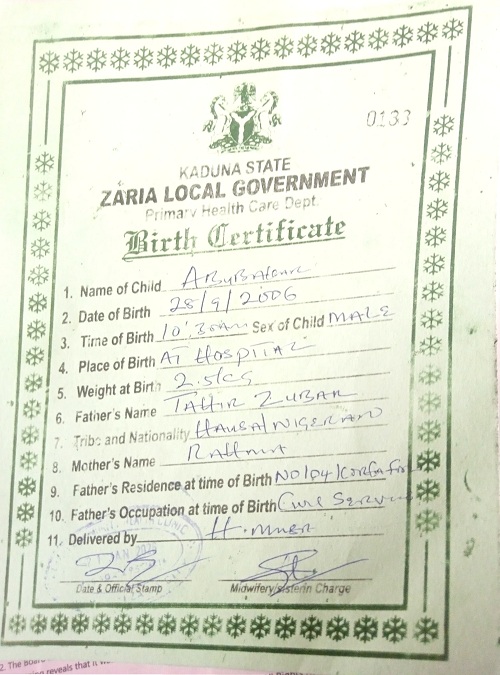 0133
KADUNA STATE
ZARIA LOCAL GOVERNMENT
Primary Health Care Dept.
Birth Certificate
1. Name of Child
2. Date of Birth 28/9/2006
3. Time of Birth 10:30am Sex of Child MALE
4. Place of Birth AT HOSPITAL
5. Weight at Birth 2.5kg
6. Father's Name TAHIR ZUBAR
7. Tribe and Nationality HAUSA/NIGERIAN
8. Mother's Name
9. Father's Residence at time of Birth NO/04/
10. Father's Occupation at time of Birth
11. Delivered by
Date & Official Stamp Midwifery/sisterin Charge
2. The Board
reveals that it